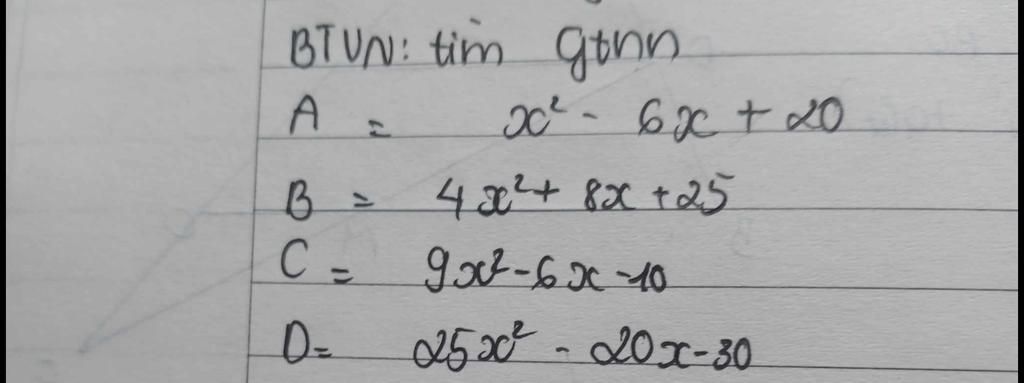 BTVN: tìm gtnn
A = x² - 6x + 20
B = 4x² + 8x + 25
C = 9x² - 6x - 10
D = 25x² - 20x - 30